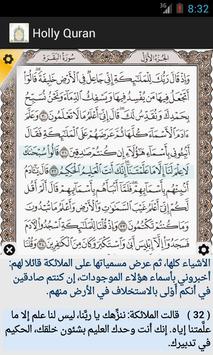 Holly Quran
8:32
سُورَةُ البَقَرَةِ
الجُزْءُ الأَوَّلُ
وَإِذْ قَالَ رَبُّكَ لِلْمَلَٰٓئِكَةِ إِنِّي جَاعِلٌ فِي ٱلْأَرْضِ خَلِيفَةً قَالُوٓا۟
أَتَجْعَلُ فِيهَا مَن يُفْسِدُ فِيهَا وَيَسْفِكُ ٱلدِّمَآءَ وَنَحْنُ نُسَبِّحُ بِحَمْدِكَ
وَنُقَدِّسُ لَكَ قَالَ إِنِّيٓ أَعْلَمُ مَا لَا تَعْلَمُونَ ٣٠ وَعَلَّمَ ءَادَمَ
ٱلْأَسْمَآءَ كُلَّهَا ثُمَّ عَرَضَهُمْ عَلَى ٱلْمَلَٰٓئِكَةِ فَقَالَ
أَنۢبِـُٔونِي بِأَسْمَآءِ هَٰٓؤُلَآءِ إِن كُنتُمْ صَٰدِقِينَ ٣١ قَالُوا۟ سُبْحَٰنَكَ
لَا عِلْمَ لَنَآ إِلَّا مَا عَلَّمْتَنَآ إِنَّكَ أَنتَ ٱلْعَلِيمُ ٱلْحَكِيمُ ٣٢
قَالَ يَٰٓـَٔادَمُ أَنۢبِئْهُم بِأَسْمَآئِهِمْ فَلَمَّآ أَنۢبَأَهُم بِأَسْمَآئِهِمْ قَالَ أَلَمْ
أَقُل لَّكُمْ إِنِّيٓ أَعْلَمُ غَيْبَ ٱلسَّمَٰوَٰتِ وَٱلْأَرْضِ وَأَعْلَمُ مَا
الأشياء كلها، ثم عرض مسمياتها على الملائكة قائلا لهم:
أخبروني بأسماء هؤلاء الموجودات، إن كنتم صادقين
في أنكم أَوْلى بالاستخلاف في الأرض منهم.
( 32 ) قالت الملائكة: ننزِّهك يا ربَّنا، ليس لنا علم إلا ما
علَّمتنا إياه. إنك أنت وحدك العليم بشئون خلقك، الحكيم
في تدبيرك.